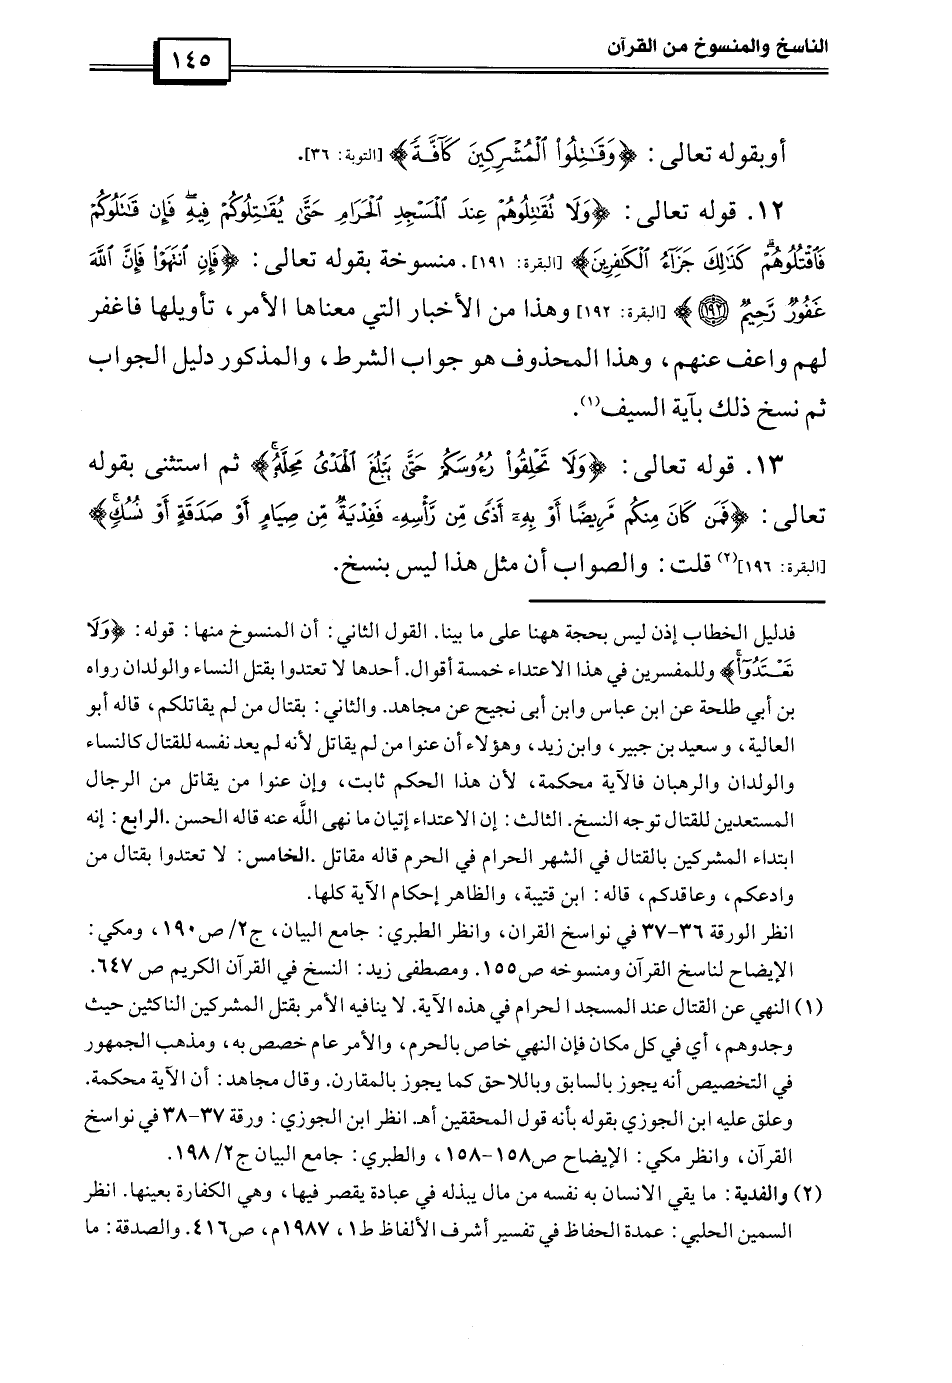 الناسخ والمنسوخ من القرآن
١٤٥
أوبقوله تعالى: ﴿وَقَٰتِلُوا۟ ٱلْمُشْرِكِينَ كَآفَّةً﴾ [التوبة: ٣٦].
١٢. قوله تعالى: ﴿وَلَا تُقَٰتِلُوهُمْ عِندَ ٱلْمَسْجِدِ ٱلْحَرَامِ حَتَّىٰ يُقَٰتِلُوكُمْ فِيهِ ۖ فَإِن قَٰتَلُوكُمْ
فَٱقْتُلُوهُمْ ۗ كَذَٰلِكَ جَزَآءُ ٱلْكَٰفِرِينَ﴾ [البقرة: ١٩١]. منسوخة بقوله تعالى: ﴿فَإِنِ ٱنتَهَوْا۟ فَإِنَّ ٱللَّهَ
غَفُورٌ رَّحِيمٌ ۝١٩٢﴾ [البقرة: ١٩٢] وهذا من الأخبار التي معناها الأمر، تأويلها فاغفر
لهم واعف عنهم، وهذا المحذوف هو جواب الشرط، والمذكور دليل الجواب
ثم نسخ ذلك بآية السيف(١).
١٣. قوله تعالى: ﴿وَلَا تَحْلِقُوا۟ رُءُوسَكُمْ حَتَّىٰ يَبْلُغَ ٱلْهَدْىُ مَحِلَّهُۥ ۚ﴾ ثم استثنى بقوله
تعالى: ﴿فَمَن كَانَ مِنكُم مَّرِيضًا أَوْ بِهِۦٓ أَذًى مِّن رَّأْسِهِۦ فَفِدْيَةٌ مِّن صِيَامٍ أَوْ صَدَقَةٍ أَوْ نُسُكٍ ۚ﴾
[البقرة: ١٩٦](٢) قلت: والصواب أن مثل هذا ليس بنسخ.
فدليل الخطاب إذن ليس بحجة ههنا على ما بينا. القول الثاني: أن المنسوخ منها: قوله: ﴿وَلَا
تَعْتَدُوٓا۟ ۚ﴾ وللمفسرين في هذا الاعتداء خمسة أقوال. أحدها لا تعتدوا بقتل النساء والولدان رواه
بن أبي طلحة عن ابن عباس وابن أبى نجيح عن مجاهد. والثاني: بقتال من لم يقاتلكم، قاله أبو
العالية، و سعيد بن جبير، وابن زيد، وهؤلاء أن عنوا من لم يقاتل لأنه لم يعد نفسه للقتال كالنساء
والولدان والرهبان فالآية محكمة، لأن هذا الحكم ثابت، وإن عنوا من يقاتل من الرجال
المستعدين للقتال توجه النسخ. الثالث: إن الاعتداء إتيان ما نهى اللَّه عنه قاله الحسن .الرابع: إنه
ابتداء المشركين بالقتال في الشهر الحرام في الحرم قاله مقاتل .الخامس: لا تعتدوا بقتال من
وادعكم، وعاقدكم، قاله: ابن قتيبة، والظاهر إحكام الآية كلها.
انظر الورقة ٣٦-٣٧ في نواسخ القران، وانظر الطبري: جامع البيان، ج٢/ ص١٩٠، ومكي:
الإيضاح لناسخ القرآن ومنسوخه ص١٥٥. ومصطفى زيد: النسخ في القرآن الكريم ص ٦٤٧.
(١) النهي عن القتال عند المسجد ا لحرام في هذه الآية. لا ينافيه الأمر بقتل المشركين الناكثين حيث
وجدوهم، أي في كل مكان فإن النهي خاص بالحرم، والأمر عام خصص به، ومذهب الجمهور
في التخصيص أنه يجوز بالسابق وباللاحق كما يجوز بالمقارن. وقال مجاهد: أن الآية محكمة.
وعلق عليه ابن الجوزي بقوله بأنه قول المحققين أهـ. انظر ابن الجوزي: ورقة ٣٧-٣٨ في نواسخ
القرآن، وانظر مكي: الإيضاح ص١٥٨-١٥٨، والطبري: جامع البيان ج٢/ ١٩٨.
(٢) والفدية: ما يقي الانسان به نفسه من مال يبذله في عبادة يقصر فيها، وهي الكفارة بعينها. انظر
السمين الحلبي: عمدة الحفاظ في تفسير أشرف الألفاظ ط١، ١٩٨٧م، ص٤١٦. والصدقة: ما